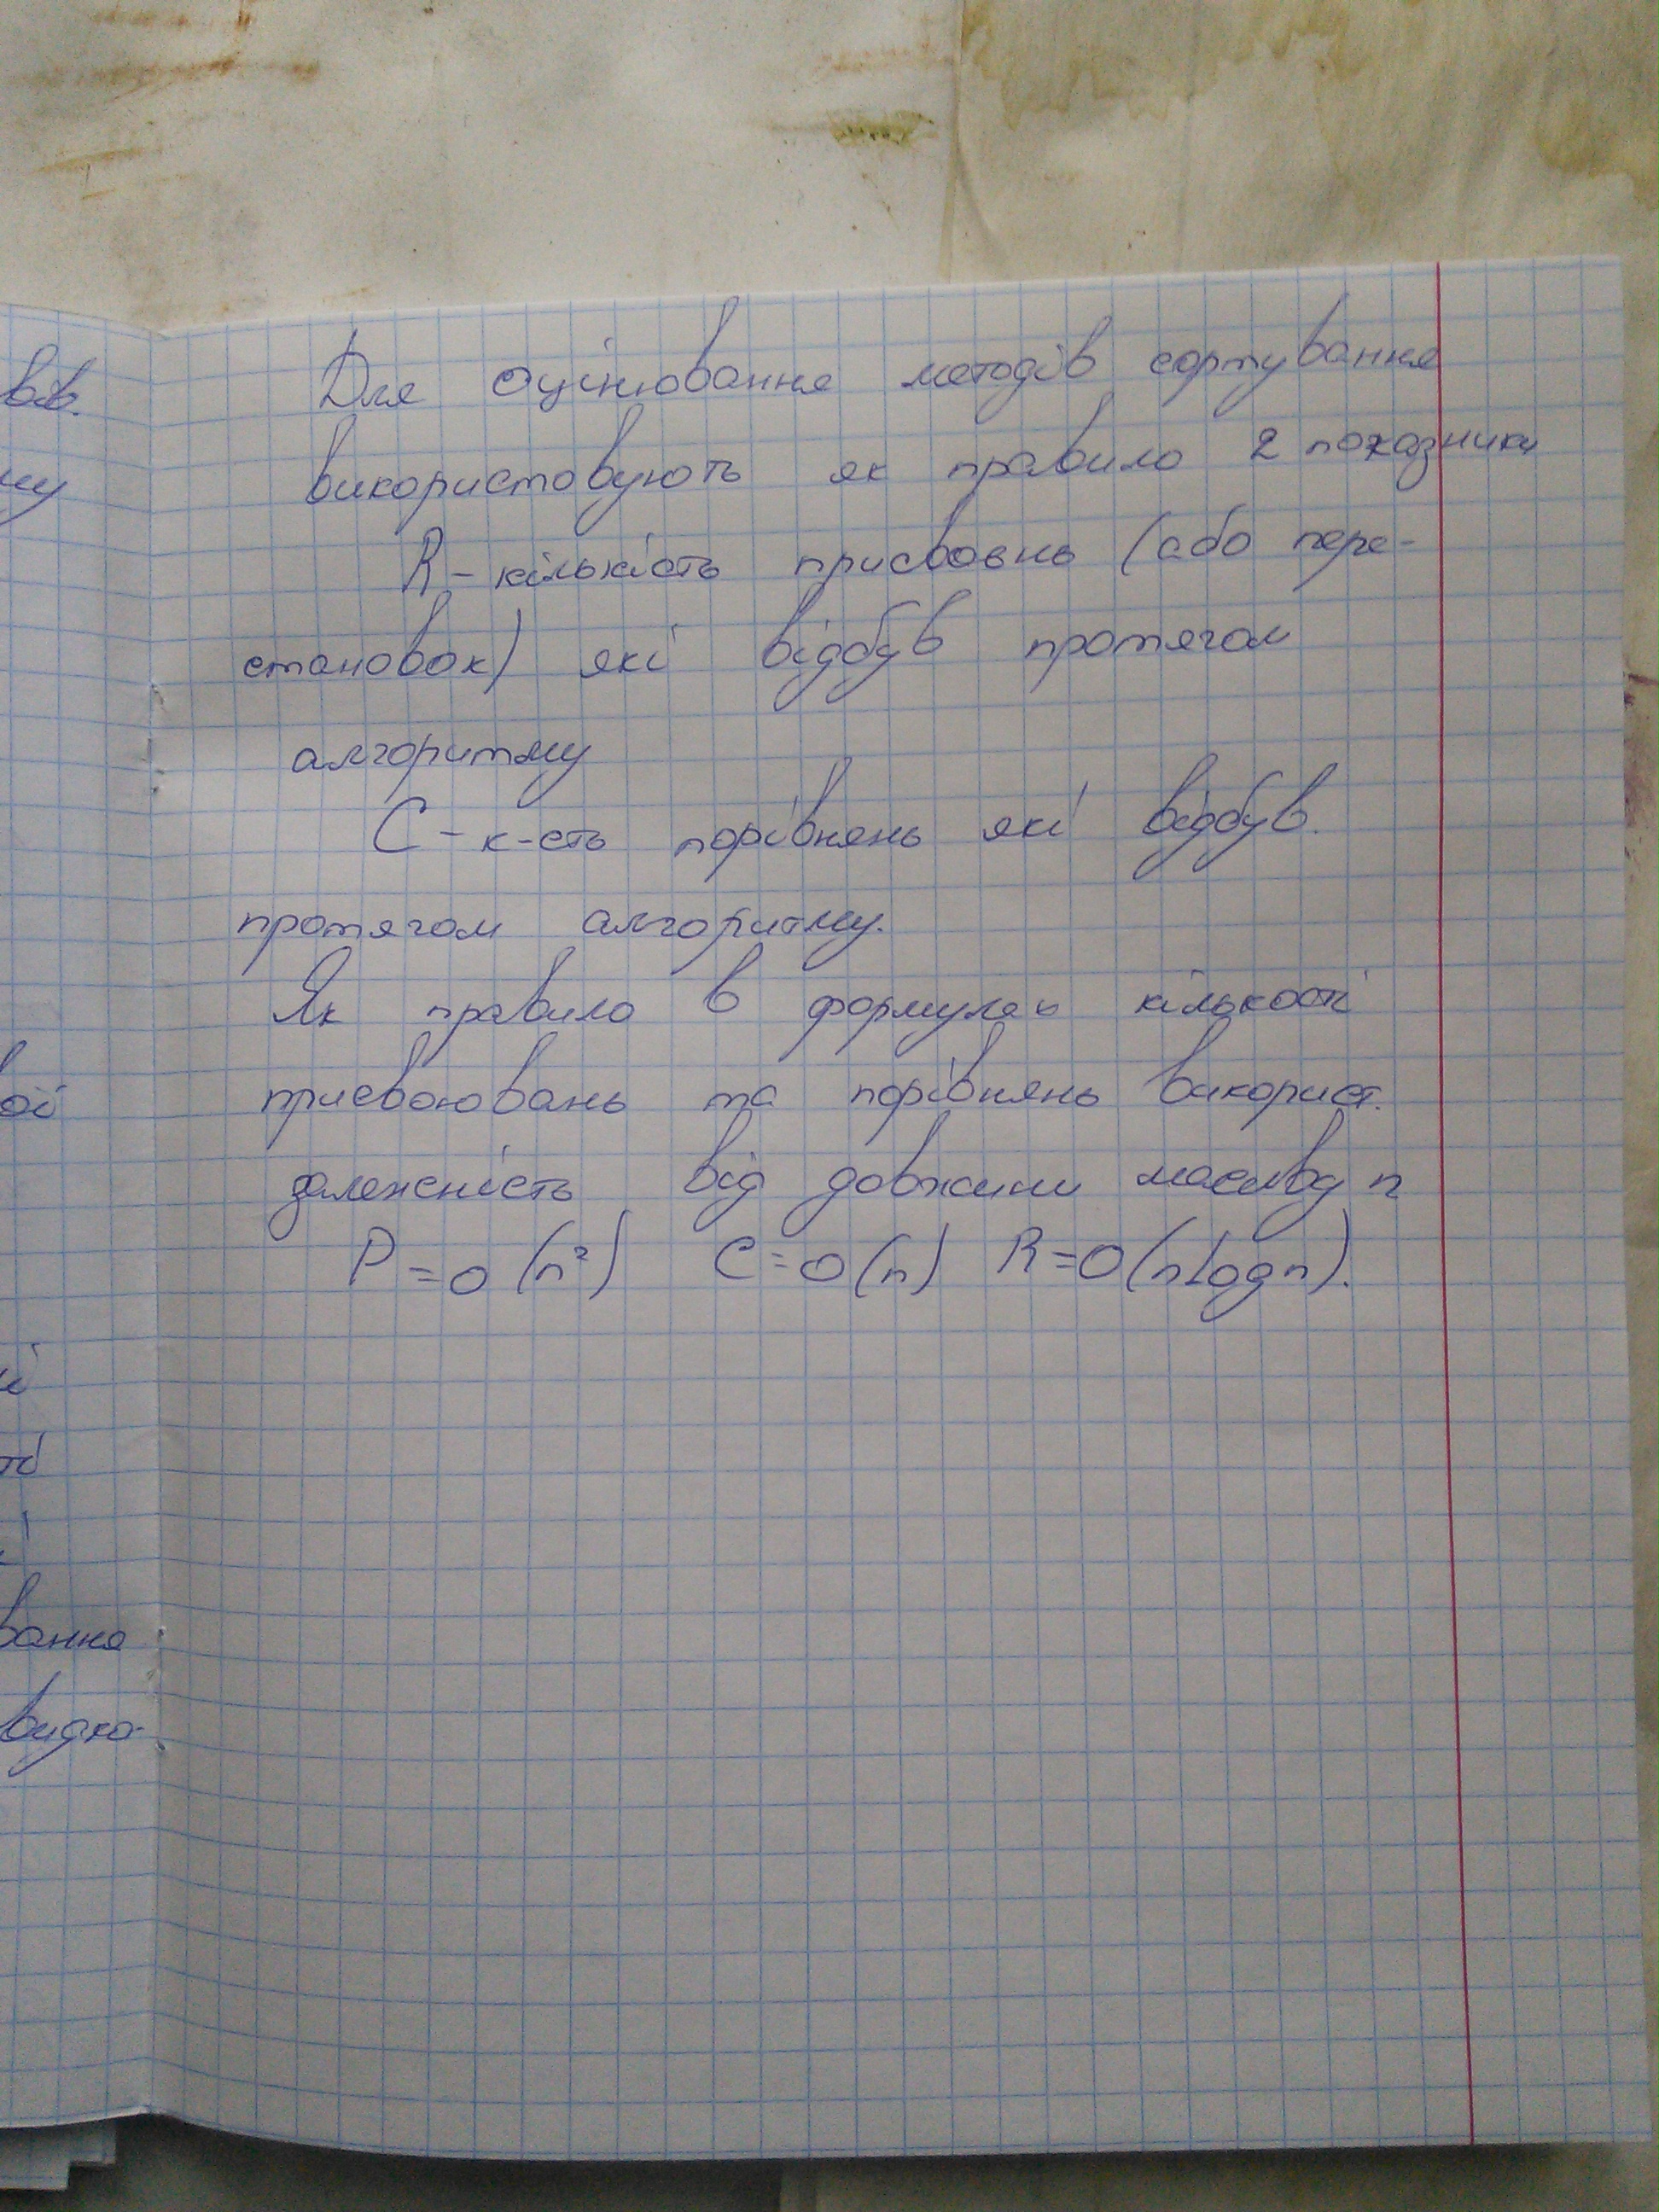 Для оцінювання методів сортування
використовують як правило 2 показники
R - кількість присвоєнь (або пере-
становок) які відбув протягом
алгоритму
C - к-сть порівнянь які відбув.
протягом алгоритму.
Як правило в формулах кількості
присвоювань та порівнянь використ.
залежність від довжини масиву n
P = O (n²) C = O (n) R = O (n log n).
вання